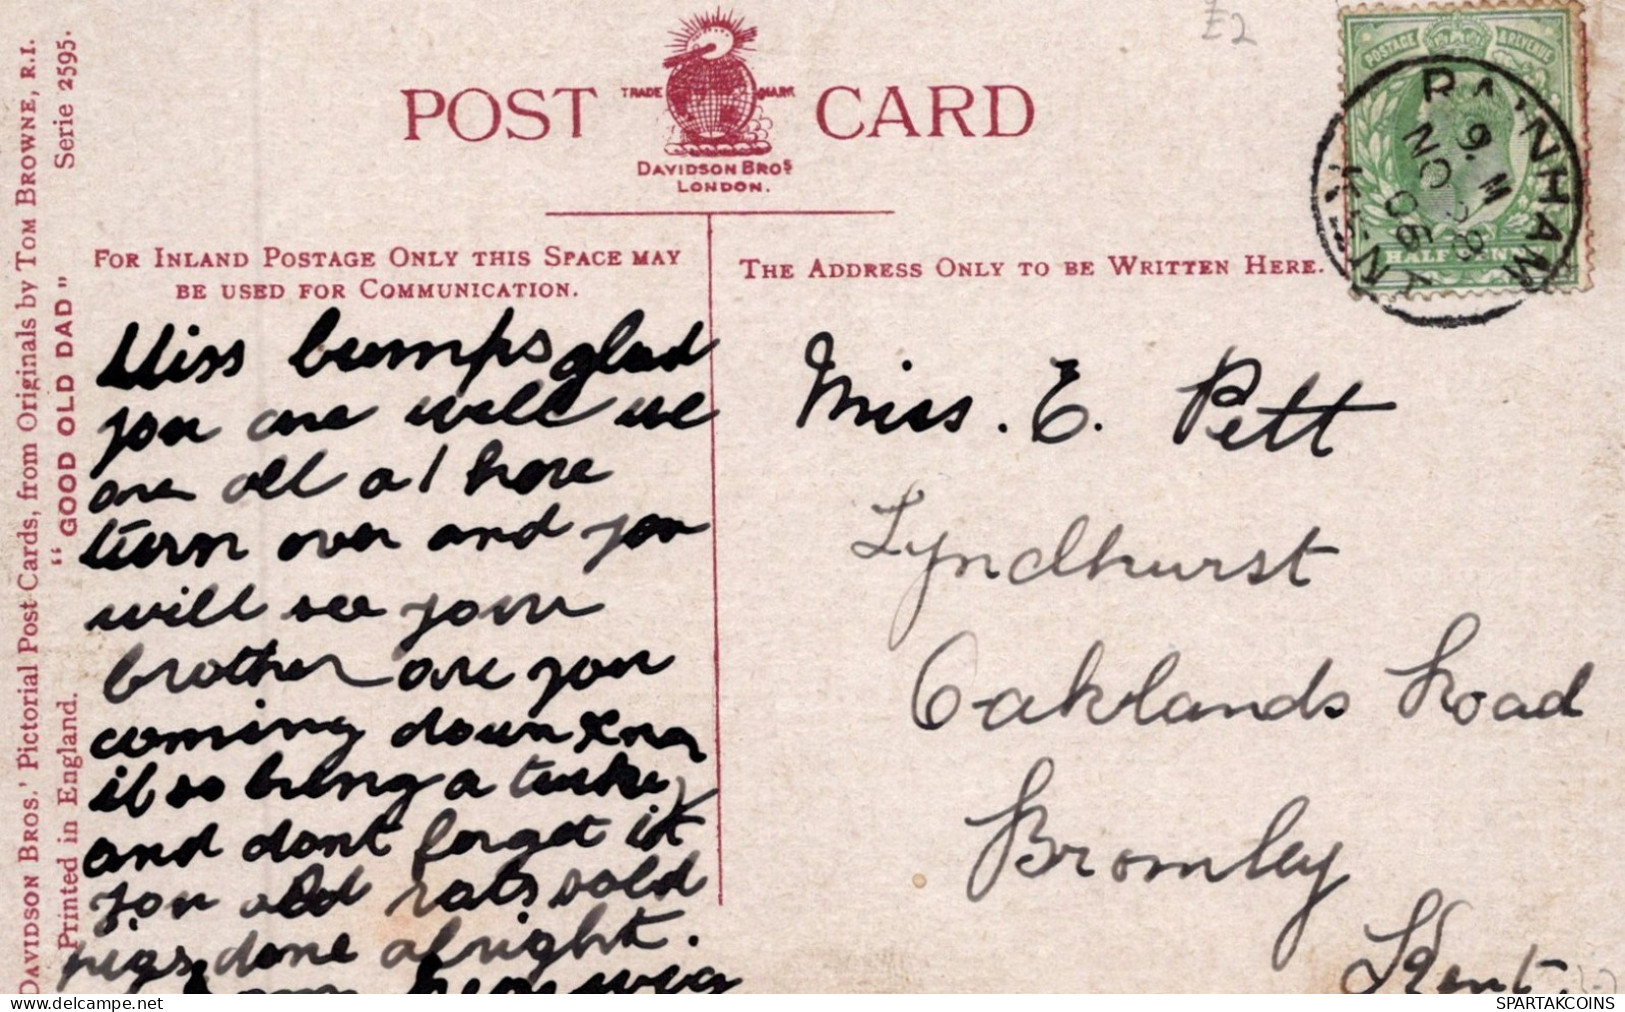 £2
POSTAGE & REVENUE
HALF PENNY
RAINHAM
9. M
NO 28
06
KENT
POST CARD
TRADE MARK
DAVIDSON BROS
LONDON.
DAVIDSON BROS.' Pictorial Post Cards, from Originals by TOM BROWNE, R.I.
Printed in England. "GOOD OLD DAD" Serie 2595.
FOR INLAND POSTAGE ONLY THIS SPACE MAY
BE USED FOR COMMUNICATION.
THE ADDRESS ONLY TO BE WRITTEN HERE.
Miss bumps glad
you are well we
are all a1 here
turn over and you
will see your
brother are you
coming down Xmas
if so bring a turkey
and dont forget it
you old rats sold
pigs done alright.
from
Miss. E. Pett
Lyndhurst
Oaklands Road
Bromley
Kent.
SPARTAKCOINS